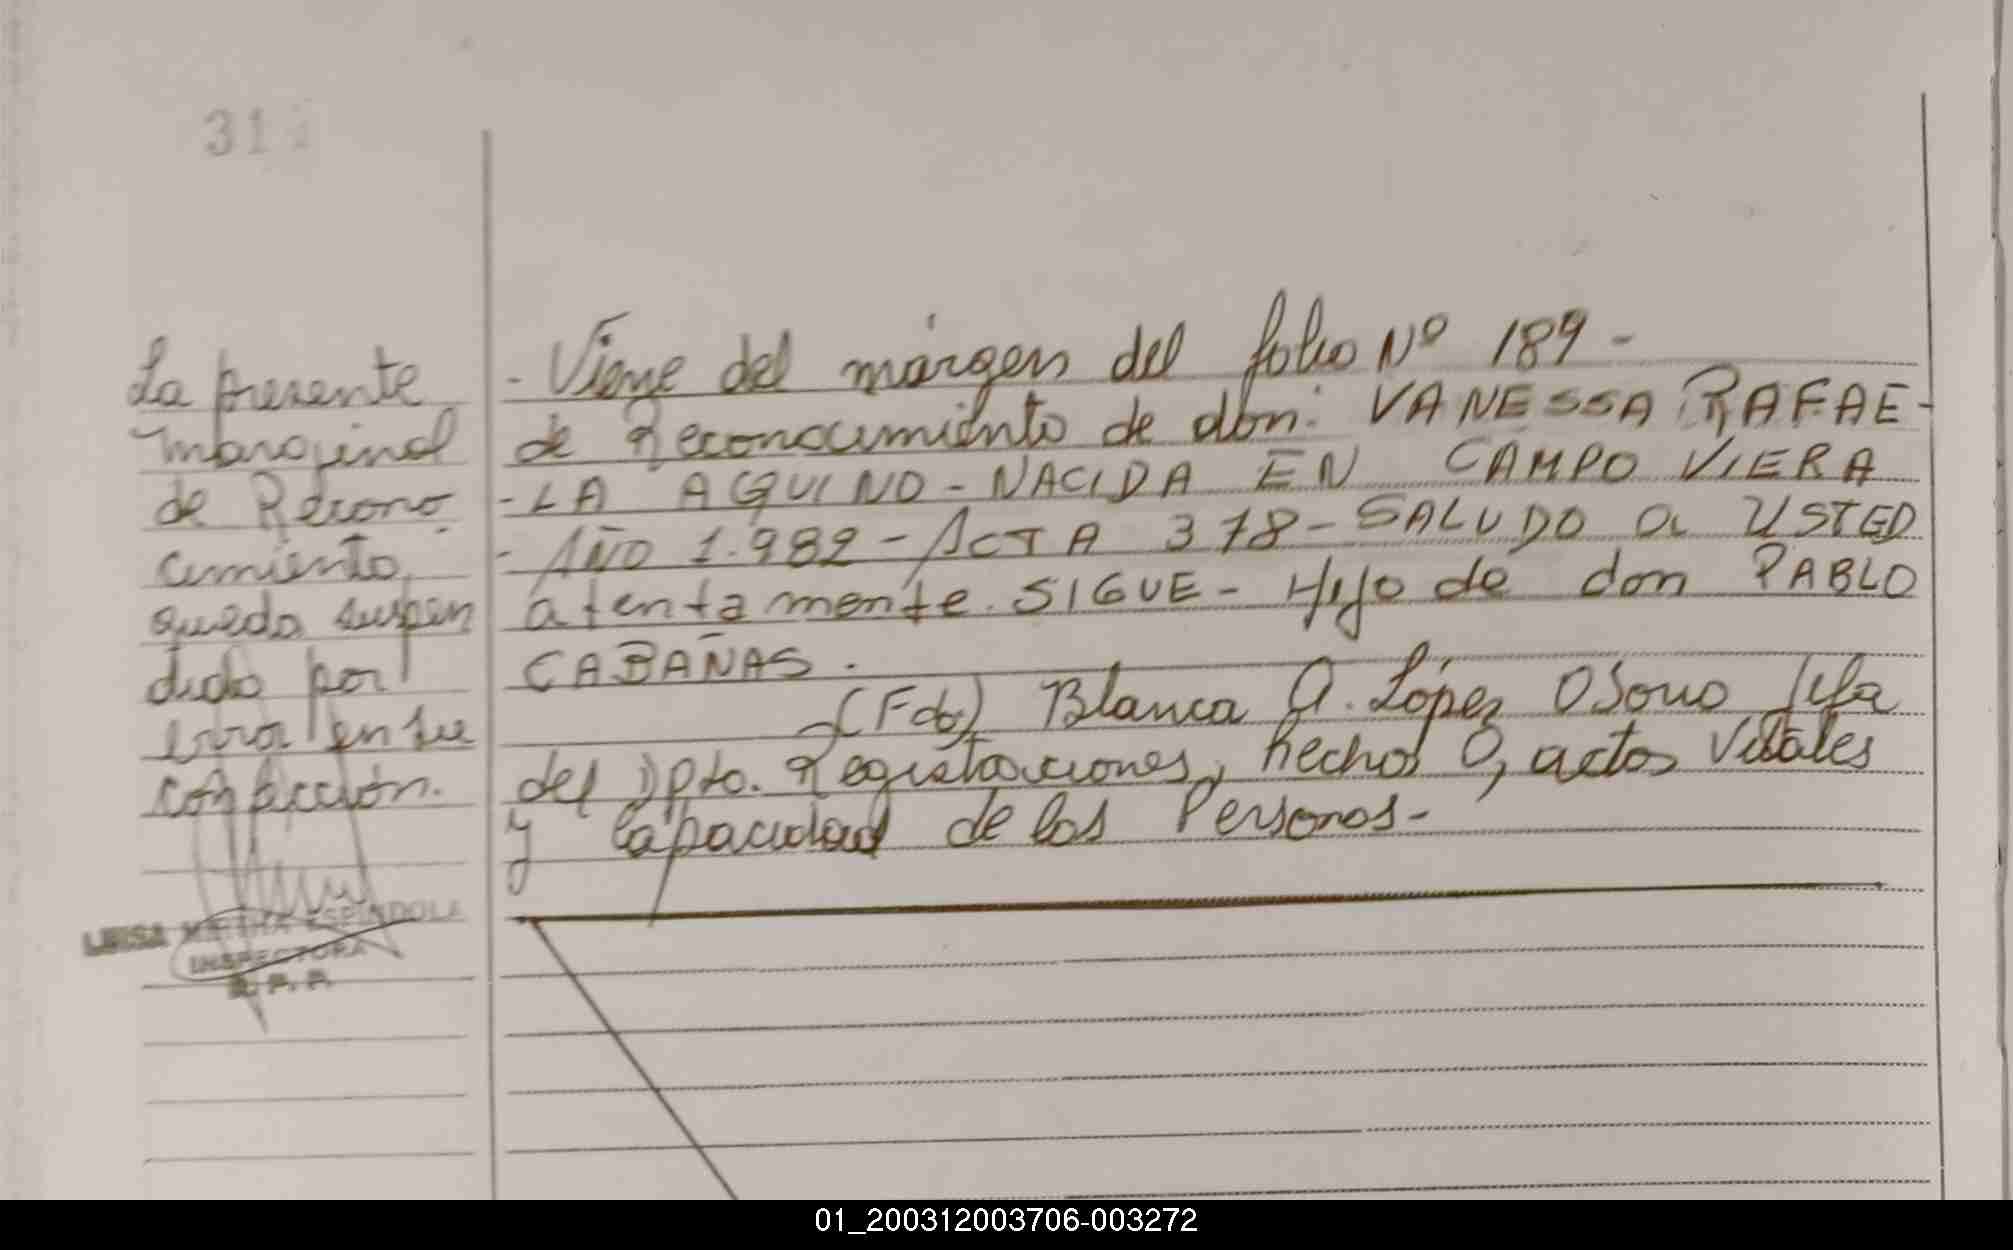 31
La presente
marginal
de Recono
cimiento,
queda suspen
dida por
error en su
confección.
LUISA MIRTHA ESPINDOLA
INSPECTORA
R. P. P.
- Viene del márgen del folio Nº 189 -
de Reconocimiento de don: VANESSA RAFAE-
-LA AQUINO - NACIDA EN CAMPO VIERA
- AÑO 1.982 - ACTA 378 - SALUDO a USTED
atentamente. SIGUE - Hijo de don PABLO
CABAÑAS.
(Fdo) Blanca A. López Osorio Jefa
del Dpto. Registraciones, hechos O, actos Vitales
y Capacidad de las Personas -
01_200312003706-003272